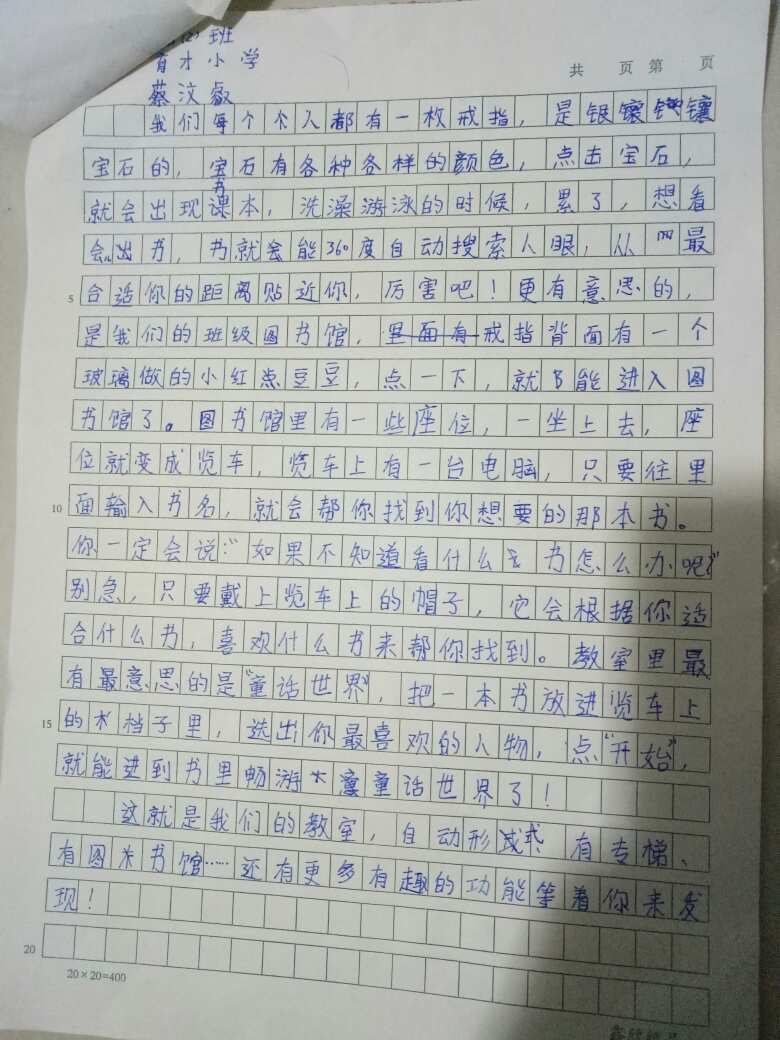 (2)班
育才小学
共 页 第 页
蔡汶叡
我们每个人都有一枚戒指，是银镶镶
宝石的，宝石有各种各样的颜色，点击宝石，
就会出现书课本，洗澡游泳的时候，累了，想看
会出书，书就会能360度自动搜索人眼，从最
5 合适你的距离贴近你，厉害吧！更有意思的，
是我们的班级图书馆，里面有戒指背面有一个
玻璃做的小红点豆豆，点一下，就能进入图
书馆了。图书馆里有一些座位，一坐上去，座
位就变成览车，览车上有一台电脑，只要往里
10 面输入书名，就会帮你找到你想要的那本书。
你一定会说：“如果不知道看什么书怎么办呢？”
别急，只要戴上览车上的帽子，它会根据你适
合什么书，喜欢什么书来帮你找到。教室里最
有最意思的是“童话世界”，把一本书放进览车上
15 的档子里，选出你最喜欢的人物，点“开始”，
就能进到书里畅游童话世界了！
这就是我们的教室，自动形式 有专梯、
有图书馆……还有更多有趣的功能等着你来发
现！
20
20×20=400